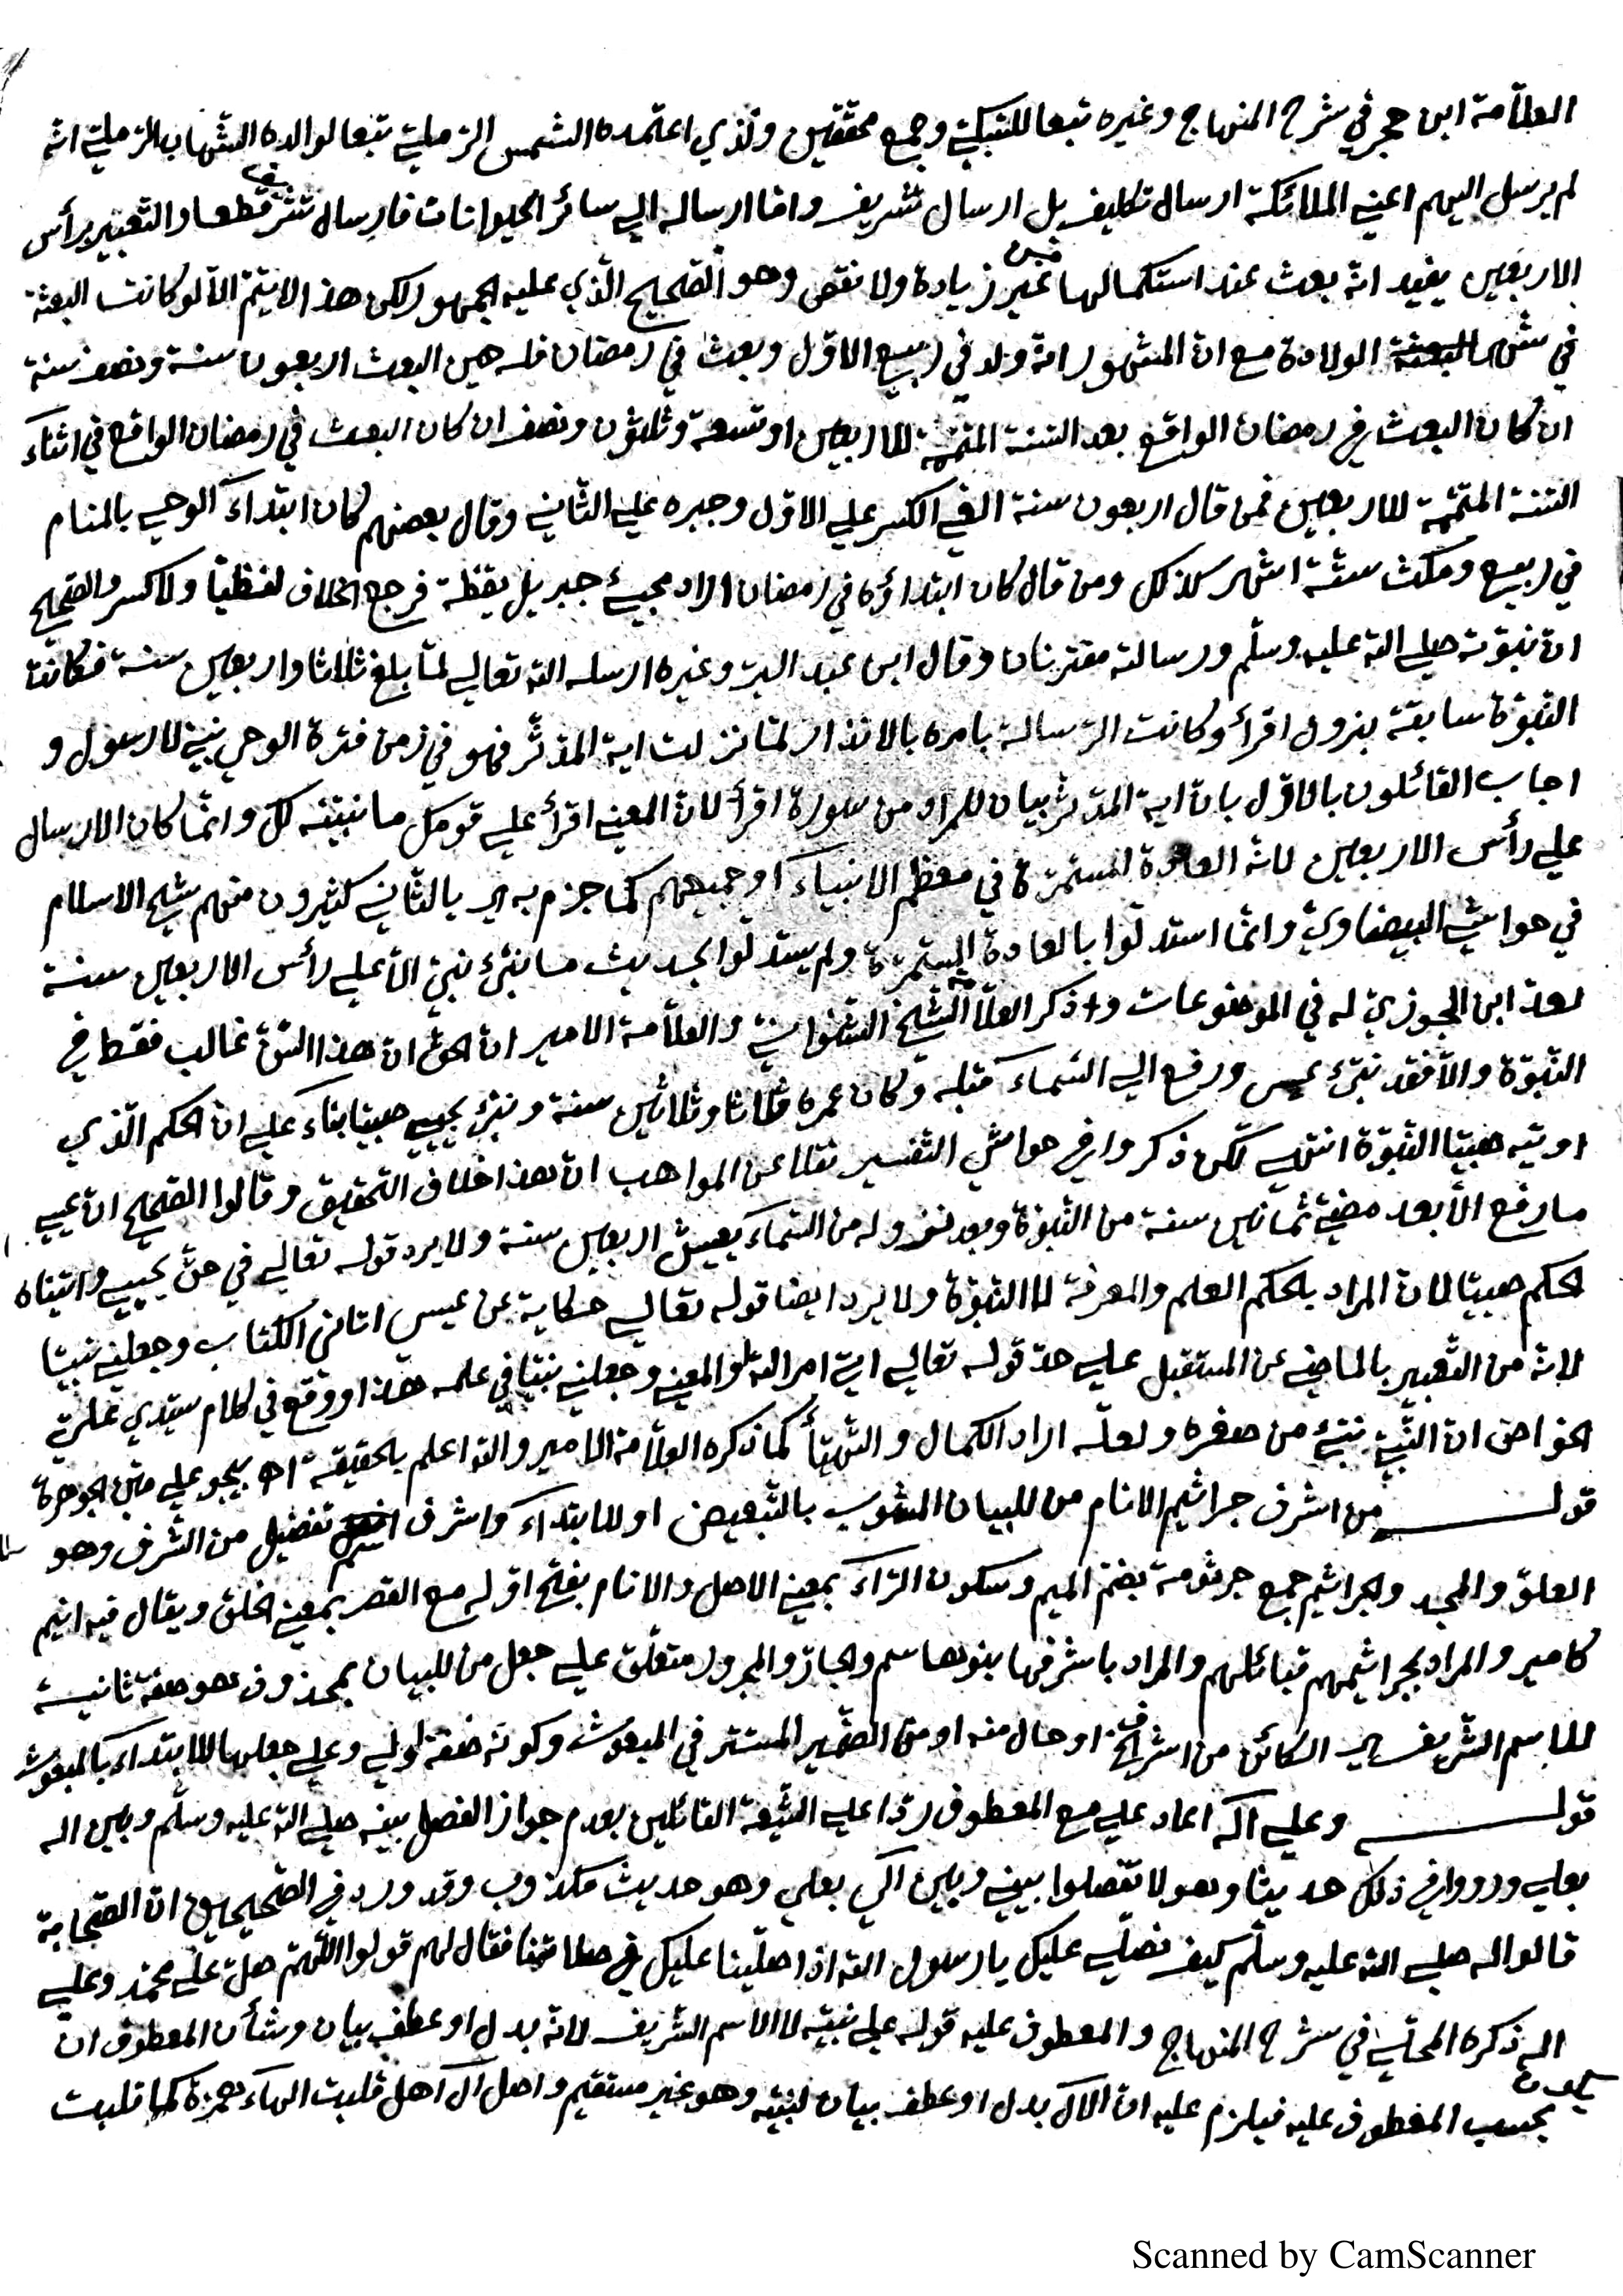 العلّامة ابن حجر في شرح المنهاج وغيره تبعا للسّبكيّ وجمع محققين والذي اعتمده الشمس الرّمليّ تبعا لوالده الشّهاب الرّمليّ انّه
لم يرسل اليهم اعني الملائكة ارسال تكليف بل ارسال تشريف وامّا ارساله الي سائر الحيوانات فارسال تشريف قطعا والتّعبير برأس
الاربعين يفيد انّه بعث عند استكمالها من غير زيادة ولا نقص وهو الصّحيح الّذي عليه الجمهور لكن هذا لا يتمّ الّا لو كانت البعثة
في شهر الولادة مع انّ المشهور انّه ولد في ربيع الاوّل وبعث في رمضان فله حين البعث اربعون سنة ونصف سنة
ان كان البعث في رمضان الواقع بعد السّنة المتمّمة للاربعين او تسعة وثلثون ونصف ان كان البعث في رمضان الواقع في اثناء
السّنة المتمّمة للاربعين فمن قال اربعون سنة الغي الكسر علي الاوّل وجبره علي الثّاني وقال بعضهم كان ابتداء الوحي بالمنام
في ربيع ومكث ستّة اشهر كذلك ومن قال كان ابتداؤه في رمضان اراد مجيئ جبريل يقظة فرجع الخلاف لفظيّا ولا كسر والصّحيح
انّ نبوّته صلي الله عليه وسلّم ورسالته مقترنتان وقال ابن عبد البرّ وغيره ارسله الله تعالي لمّا بلغ ثلاثا واربعين سنة فكانت
النّبوّة سابقة بنزول اقرأ وكانت الرّسالة بامره بالانذار لمّا نزلت اية المدّثّر فهو في زمن فترة الوحي نبيّ لا رسول و
اجاب القائلون بالاوّل بانّ اية المدّثّر بيان للمراد من سورة اقرأ لانّ المعني اقرأ علي قومك ما نبيّنه لك وانّما كان الارسال
علي رأس الاربعين لانّه العادة المستمرّة في معظم الانبياء او جميعهم كما جزم به اي بالثّاني كثيرون منهم شيخ الاسلام
في حواشي البيضاويّ وانّما استدلّوا بالعادة المستمرّة ولم يستدلّوا بحديث ما نبّئ نبيّ الّا علي رأس الاربعين سنة
لعدّ ابن الجوزيّ له في الموضوعات وذكر العلّامة الشّيخ الشنوانيّ والعلّامة الامير انّ الحقّ انّ هذا السّنّ غالب فقط في
النّبوّة والّا فقد نبّئ عيسي ورفع الي السّماء قبله وكان عمره ثلاثا وثلاثين سنة ونبّئ يحيي صبيّا بناء علي انّ الحكم الّذي
اوتيه صبيّا النّبوّة انتهي لكن ذكروا في حواشي التفسير نقلا عن المواهب انّ هذا خلاف التّحقيق وقالوا الصّحيح انّ عيسي
ما رفع الّا بعد مضيّ ثمانين سنة من النّبوّة وبعد نزوله من السّماء يعيش اربعين سنة ولا يرد قوله تعالي في حقّ يحيي واتيناه
الحكم صبيّا لانّ المراد بالحكم العلم والمعرفة لا النّبوّة ولا يرد ايضا قوله تعالي حكاية عن عيسي اتاني الكتاب وجعلني نبيّا
لانّه من التّعبير بالماضي عن المستقبل علي حدّ قوله تعالي اتي امر الله والمعني وجعلني نبيّا في علمه هذا ووقع في كلام سيّدي عليّ
الخواص انّ النّبيّ نبّئ من صغره ولعلّه اراد الكمال والتّهيّأ كما ذكره العلّامة الامير والله اعلم بالحقيقة اه بيجوري علي متن الجوهرة
قوله من اشرف جراثيم الانام من للبيان المشوب بالتّبعيض او للابتداء واشرف اسم تفضيل من الشّرف وهو
العلوّ والمجد والجراثيم جمع جرثومة بضمّ الجيم وسكون الرّاء بمعني الاصل والانام بفتح اوله مع القصر بمعني الخلق ويقال فيه انيم
كامير والمراد بجراثيمهم قبائلهم والمراد باشرفها بنو هاشم والجارّ والمجرور متعلّق علي جعل من للبيان بمحذوف هو صفة ثانية
للاسم الشّريف اي الكائن من اشرف الخ او حال منه او من الضّمير المستتر في المبعوث وكونه صفة اولي وعلي جعلها للابتداء بالمبعوث
قوله وعلي آله اعاد علي مع المعطوف ردّا علي الشّيعة القائلين بعدم جواز الفصل بينه صلي الله عليه وسلّم وبين اله
بعلي ورووا في ذلك حديثا وهو لا تفصلوا بيني وبين آلي بعلي وهو حديث مكذوب وقد ورد في الصّحيحين انّ الصّحابة
قالوا له صلي الله عليه وسلّم كيف نصلّي عليك يا رسول الله اذا صلّينا عليك في صلاتنا فقال لهم قولوا اللّهمّ صلّ علي محمّد وعلي
اله ذكره المحلّي في شرح المنهاج والمعطوف عليه قوله علي نبيّه لا الاسم الشّريف لانّه بدل او عطف بيان وشأن المعطوف ان يكون
بحسب المعطوف عليه فيلزم عليه انّ الآل بدل او عطف بيان لنبيّه وهو غير مستقيم واصل ال اهل قلبت الهاء همزة كما قلبت
Scanned by CamScanner